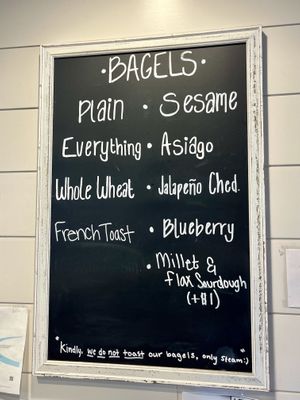 ·BAGELS·
Plain · Sesame
Everything · Asiago
Whole Wheat · Jalapeño Ched.
French Toast · Blueberry
· Millet &
flax Sourdough
(+$1)
"Kindly, we do not toast our bagels, only steam:)"